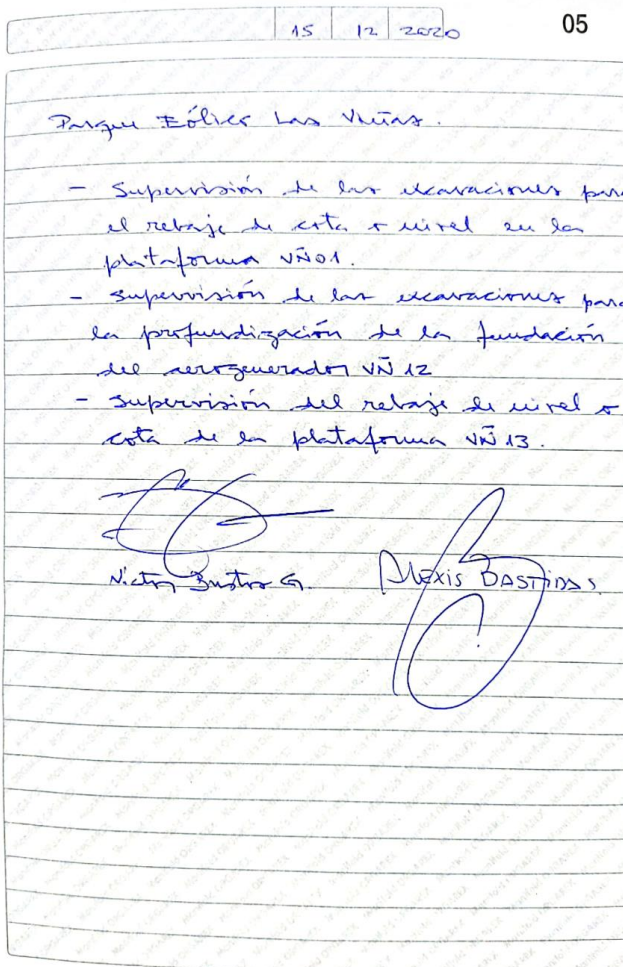 15 12 2020
05
Parque Eólico Las Viñas.
- Supervisión de las excavaciones para
el rebaje de cota o nivel en la
plataforma VÑ01.
- Supervisión de las excavaciones para
la profundización de la fundación
del aerogenerador VÑ 12
- Supervisión del rebaje de nivel o
cota de la plataforma VÑ 13.
Victor Bustos G.
Alexis BASTIDAS